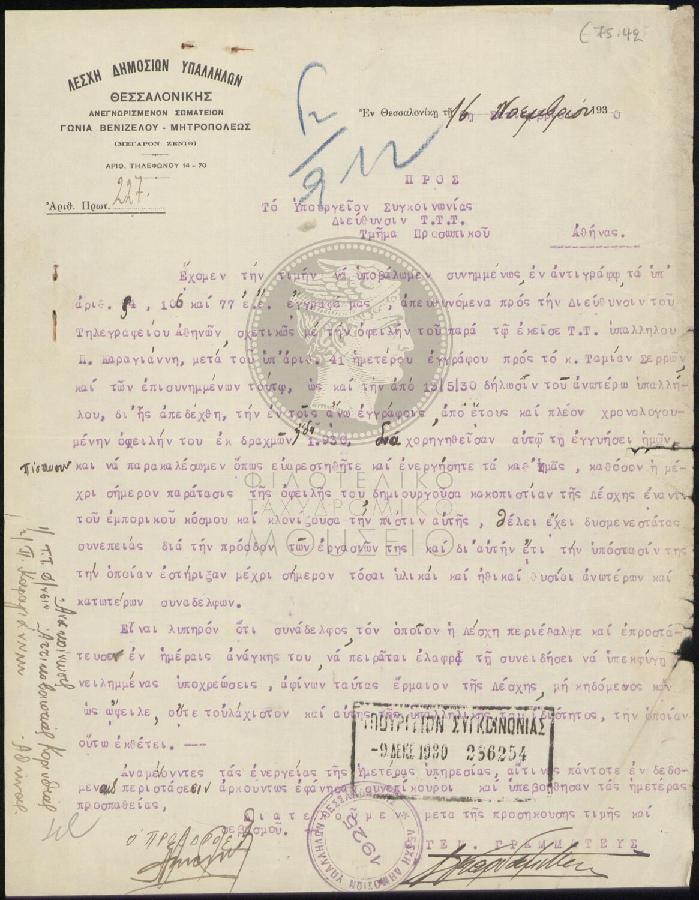 (75.42
ΛΕΣΧΗ ΔΗΜΟΣΙΩΝ ΥΠΑΛΛΗΛΩΝ
ΘΕΣΣΑΛΟΝΙΚΗΣ
ΑΝΕΓΝΩΡΙΣΜΕΝΟΝ ΣΩΜΑΤΕΙΟΝ
ΓΩΝΙΑ ΒΕΝΙΖΕΛΟΥ - ΜΗΤΡΟΠΟΛΕΩΣ
(ΜΕΓΑΡΟΝ ΖΕΝΙΘ)
ΑΡΙΘ. ΤΗΛΕΦΩΝΟΥ 14 - 70
Ἀριθ. Πρωτ. 227
Ἐν Θεσσαλονίκῃ τῇ 16 Νοεμβρίου 1930
ΠΡΟΣ
Τὸ Ὑπουργεῖον Συγκοινωνίας
Διεύθυνσιν Τ.Τ.Τ.
Τμῆμα Προσωπικοῦ
Ἀθήνας.
Ἔχομεν τήν τιμήν νά ὑποβάλωμεν συνημμένως ἐν ἀντιγράφῳ τά ὑπ'
ἀριθ. 106 καί 77 ἔ.ἔ. ἔγγραφά μας, ἀπευθυνόμενα πρός τήν Διεύθυνσιν τοῦ
Τηλεγραφείου Ἀθηνῶν σχετικῶς μέ τήν ὀφειλήν τοῦ παρά τῷ ἐκεῖσε Τ.Τ. ὑπαλλήλου
Π. Καραγιάννη, μετά τοῦ ὑπ' ἀριθ. 41 ἡμετέρου ἐγγράφου πρός τό κ. Ταμίαν Σερρῶν
καί τῶν ἐπισυνημμένων τούτῳ, ὡς καί τήν ἀπό 13/5/30 δήλωσιν τοῦ ἀνωτέρω ὑπαλλή-
λου, δι' ἧς ἀπεδέχθη, τήν ἐν τοῖς ἄνω ἐγγράφοις, ἀπό ἔτους καί πλέον χρονολογου-
μένην ὀφειλήν του ἐκ δραχμῶν 1.930, διά χορηγηθεῖσαν αὐτῷ τῇ ἐγγυήσει ἡμῶν
πίστωσιν καί νά παρακαλέσωμεν ὅπως εὐαρεστηθῆτε καί ἐνεργήσητε τά καθ' Ὑμᾶς, καθόσον ἡ μέ-
χρι σήμερον παράτασις τῆς ὀφειλῆς του δημιουργοῦσα κακοπιστίαν τῆς Λέσχης ἔναντι
τοῦ ἐμπορικοῦ κόσμου καί κλονίζουσα τήν πίστιν αὐτῆς, θέλει ἔχει δυσμενεστάτας
συνεπείας διά τήν πρόοδον τῶν ἐργασιῶν της καί δι' αὐτήν ἔτι τήν ὑπόστασίν της
τήν ὁποίαν ἐστήριξαν μέχρι σήμερον τόσαι ὑλικαί καί ἠθικαί θυσίαι ἀνωτέρων καί
κατωτέρων συναδέλφων.
Εἶναι λυπηρόν ὅτι συνάδελφος τόν ὁποῖον ἡ Λέσχη περιέθαλψε καί ἐπροστά-
τευσεν ἐν ἡμέραις ἀνάγκης του, νά πειρᾶται ἐλαφρᾷ τῇ συνειδήσει νά ὑπεκφύγῃ
νειλημμένας ὑποχρεώσεις, ἀφίνων ταύτας ἕρμαιον τῆς Λέσχης, μή κηδόμενος
ὡς ὤφειλε, οὔτε τοὐλάχιστον καί αὐτῆς τῆς ὑπαλληλικῆς του ἰδιότητος, τήν ὁποίαν
οὕτω ἐκθέτει. ---
Ἀναμένοντες τάς ἐνεργείας τῆς Ἡμετέρας ὑπηρεσίας, αἵτινες πάντοτε ἐν δεδο-
μέναις περιστάσεσιν ἀρκούντως ἐφάνησαν συνεπίκουροι καί ὑπεβοήθησαν τάς ἡμετέρας
προσπαθείας,
Διατελοῦμεν μετά τῆς προσηκούσης τιμῆς καί
σεβασμοῦ.
Ο ΠΡΟΕΔΡΟΣ
ΓΕΝ. ΓΡΑΜΜΑΤΕΥΣ
ΥΠΟΥΡΓΕΙΟΝ ΣΥΓΚΟΙΝΩΝΙΑΣ
-9 ΔΕΚ. 1930 236254
ΛΕΣΧΗ ΔΗΜΟΣΙΩΝ ΥΠΑΛΛΗΛΩΝ ΘΕΣΣΑΛΟΝΙΚΗΣ
1925
ΦΙΛΟΤΕΛΙΚΟ
ΤΑΧΥΔΡΟΜΙΚΟ
ΜΟΥΣΕΙΟ